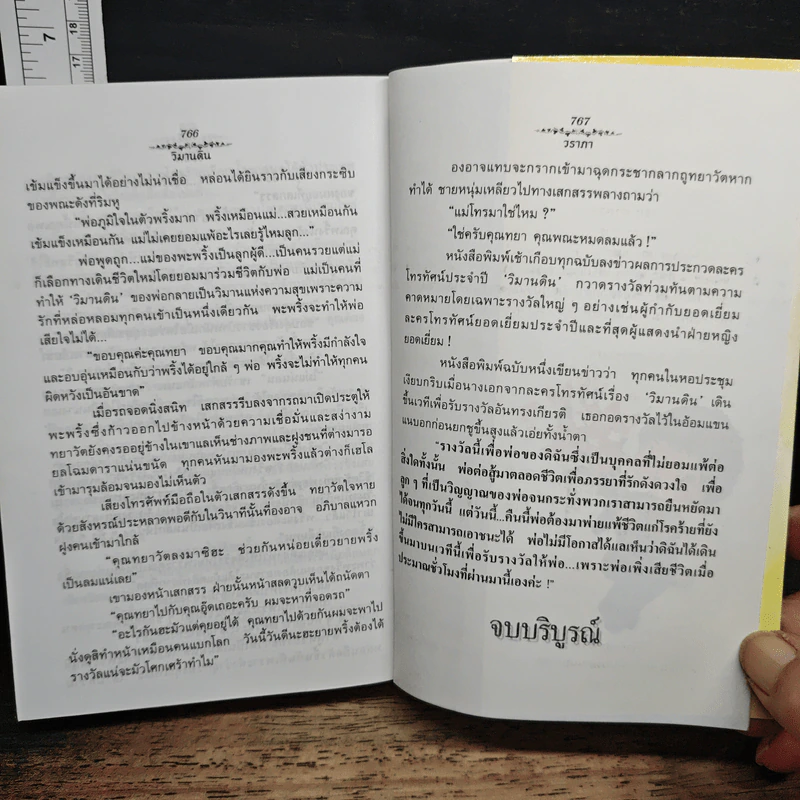 7
17
18
766
วิมานดิน
เข้มแข็งขึ้นมาได้อย่างไม่น่าเชื่อ หล่อนได้ยินราวกับเสียงกระซิบ
ของพณะดังที่ริมหู
“พ่อภูมิใจในตัวพริ้งมาก พริ้งเหมือนแม่...สวยเหมือนกัน
เข้มแข็งเหมือนกัน แม่ไม่เคยยอมแพ้อะไรเลยรู้ไหมลูก...”
พ่อพูดถูก...แม่ของพะพริ้งเป็นลูกผู้ดี...เป็นคนรวยแต่แม่
ก็เลือกทางเดินชีวิตใหม่โดยยอมมาร่วมชีวิตกับพ่อ แม่เป็นคนที่
ทำให้ ‘วิมานดิน’ ของพ่อกลายเป็นวิมานแห่งความสุขเพราะความ
รักที่หล่อหลอมทุกคนเข้าเป็นหนึ่งเดียวกัน พะพริ้งจะทำให้พ่อ
เสียใจไม่ได้...
“ขอบคุณค่ะคุณทยา ขอบคุณมากคุณทำให้พริ้งมีกำลังใจ
และอบอุ่นเหมือนกับว่าพริ้งได้อยู่ใกล้ ๆ พ่อ พริ้งจะไม่ทำให้ทุกคน
ผิดหวังเป็นอันขาด”
เมื่อรถจอดนิ่งสนิท เสกสรรรีบลงจากรถมาเปิดประตูให้
พะพริ้งซึ่งก้าวออกไปข้างหน้าด้วยความเชื่อมั่นและสง่างาม
ทยาวัตยังคงรออยู่ข้างในเขาแลเห็นช่างภาพและฝูงชนที่ต่างมารอ
ยลโฉมดาราแน่นขนัด ทุกคนหันมามองพะพริ้งแล้วต่างก็เฮโล
เข้ามารุมล้อมจนมองไม่เห็นตัว
เสียงโทรศัพท์มือถือในตัวเสกสรรดังขึ้น ทยาวัตใจหาย
ด้วยสังหรณ์ประหลาดพอดีกับในวินาทีนั้นที่องอาจ อภิบาลแหวก
ฝูงคนเข้ามาใกล้
“คุณทยาวัตลงมาซิฮะ ช่วยกันหน่อยเดี๋ยวยายพริ้ง
เป็นลมแน่เลย”
เขามองหน้าเสกสรร ฝ่ายนั้นหน้าสลดวูบเห็นได้ถนัดตา
“คุณทยาไปกับคุณอู๊ดเถอะครับ ผมจะหาที่จอดรถ”
“อะไรกันฮะมัวแต่คุยอยู่ได้ คุณทยาไปด้วยกันผมจะพาไป
นั่งดูสิทำหน้าเหมือนคนแบกโลก วันนี้วันดีนะฮะยายพริ้งต้องได้
รางวัลแน่จะมัวโศกเศร้าทำไม”
767
วราภา
องอาจแทบจะกรากเข้ามาฉุดกระชากลากถูทยาวัตหาก
ทำได้ ชายหนุ่มเหลียวไปทางเสกสรรพลางถามว่า
“แม่โทรมาใช่ไหม ?”
“ใช่ครับคุณทยา คุณพณะหมดลมแล้ว !”
หนังสือพิมพ์เช้าเกือบทุกฉบับลงข่าวผลการประกวดละคร
โทรทัศน์ประจำปี ‘วิมานดิน’ กวาดรางวัลท่วมท้นตามความ
คาดหมายโดยเฉพาะรางวัลใหญ่ ๆ อย่างเช่นผู้กำกับยอดเยี่ยม
ละครโทรทัศน์ยอดเยี่ยมประจำปีและที่สุดผู้แสดงนำฝ่ายหญิง
ยอดเยี่ยม !
หนังสือพิมพ์ฉบับหนึ่งเขียนข่าวว่า ทุกคนในหอประชุม
เงียบกริบเมื่อนางเอกจากละครโทรทัศน์เรื่อง ‘วิมานดิน’ เดิน
ขึ้นเวทีเพื่อรับรางวัลอันทรงเกียรติ เธอกอดรางวัลไว้ในอ้อมแขน
แนบอกก่อนยกชูขึ้นสูงแล้วเอ่ยทั้งน้ำตา
“รางวัลนี้เพื่อพ่อของดิฉันซึ่งเป็นบุคคลที่ไม่ยอมแพ้ต่อ
สิ่งใดทั้งนั้น พ่อต่อสู้มาตลอดชีวิตเพื่อภรรยาที่รักดังดวงใจ เพื่อ
ลูก ๆ ที่เป็นวิญญาณของพ่อจนกระทั่งพวกเราสามารถยืนหยัดมา
ได้จนทุกวันนี้ แต่วันนี้...คืนนี้พ่อต้องมาพ่ายแพ้ชีวิตแก่โรคร้ายที่ยัง
ไม่มีใครสามารถเอาชนะได้ พ่อไม่มีโอกาสได้แลเห็นว่าดิฉันได้เดิน
ขึ้นมาบนเวทีนี้เพื่อรับรางวัลให้พ่อ...เพราะพ่อเพิ่งเสียชีวิตเมื่อ
ประมาณชั่วโมงที่ผ่านมานี้เองค่ะ !”
จบบริบูรณ์